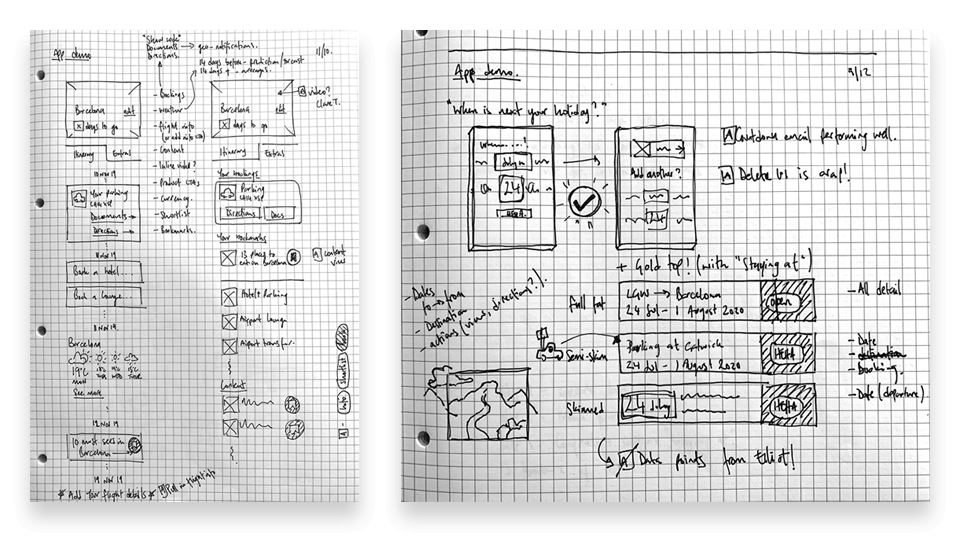 App demo
"Show code"
Documents → geo-notifications.
Directions.
14 days before - prediction/forecast
14 days + - averages.
11/10.
Barcelona edit
X days to go
Itinerary Extras
10 NOV 19
Your Parking
Documents →
Directions →
11 NOV 19
Book a hotel...
Book a lounge...
11 NOV 19
Barcelona
19°C
MON
See more
12 NOV 19
10 must sees in
Barcelona
19 NOV 19
* Add your flight details *
- Bookings
- Weather
- Flight info
- Content
- Inline video?
- Product CTAs
- Currency.
- Shortlist
- Bookmarks.
A video?
Clare T.
Barcelona edit
X days to go
Itinerary Extras
Your bookings
Parking
Directions Docs
Your bookmarks
13 places to
eat in Barcelona
A content
views
Hotels + Parking
Airport lounge
Airport transfer.
Content
Shortlist
Info
App demo.
3/12
"When is next your holiday?"
When....?
July
24
Add another?
24
A Countdown email performing well.
A Delete US is crap!
+ Gold top! (with "Staying at")
- Dates
to → from
- Destination
- actions (view, directions?).
Full fat
LGW → Barcelona
24 Jul - 1 August 2020
open
- All detail
Semi-skim
Parking at Gatwick
24 Jul - 1 August 2020
HEHA
- Date
- destination
- Booking.
Skimmed
24 July
HEHA
- Date (departure)
A Data points from Elliot!